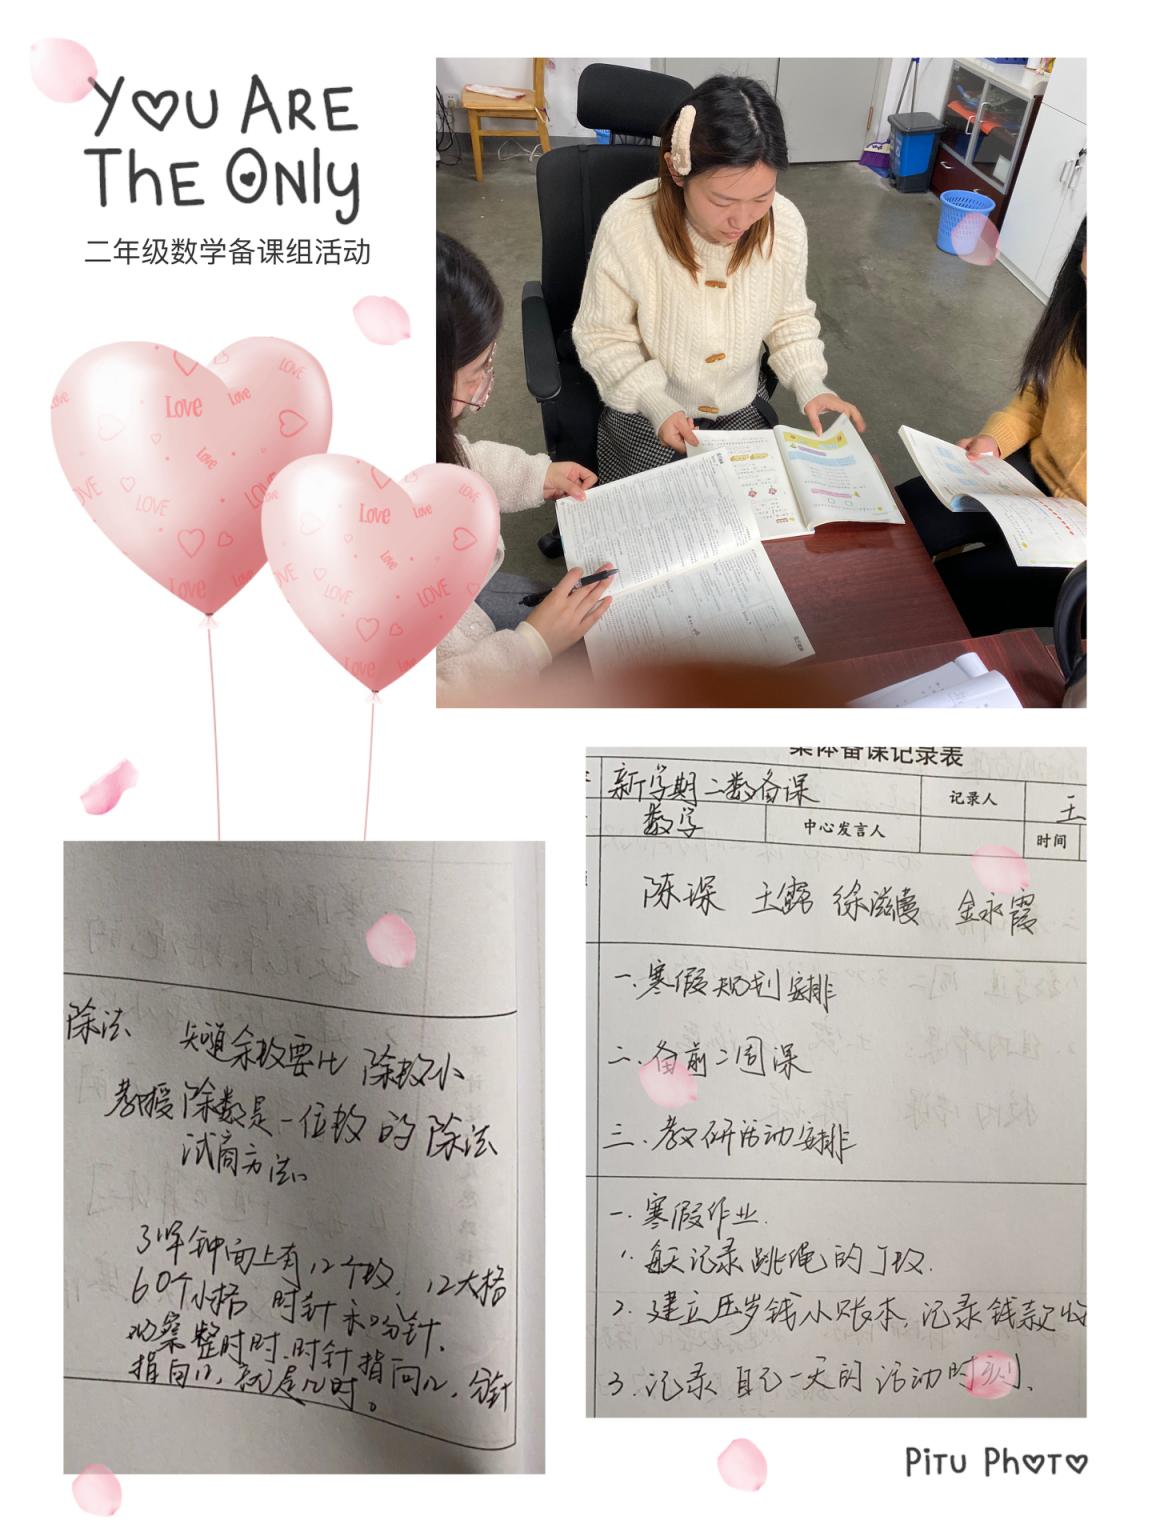 YOU ARE
THE ONLY
二年级数学备课组活动
Love
LOVE
集体备课记录表
新学期二数备课
记录人
王
数学
中心发言人
时间
陈琛 王露 徐滋蔓 金永霞
一.寒假规划安排
二.备前二周课
三.教研活动安排
一.寒假作业.
1.每天记录跳绳的个数.
2.建立压岁钱小账本.记录钱款
3.记录自己一天的活动时刻.
除法 知道余数要比除数小
教授除数是一位数的除法
试商方法。
钟面上有12个数.12大格
60个小格 时针和分针.
观察整时时.时针指向几,分针
指向12,就是几时。
PiTu PhOTO